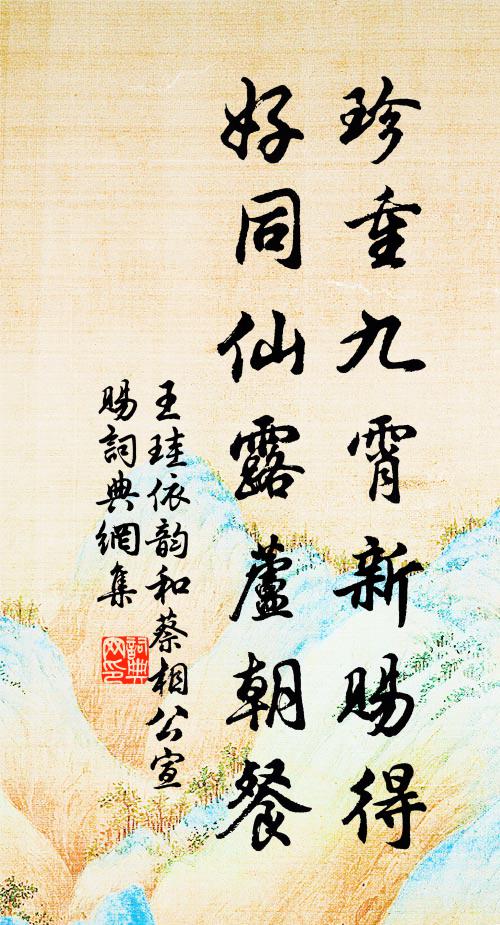 珍重九霄新賜得
好同仙露蘆朝餐
王珪依韵和蔡相公宣
賜詞典網集
詞典
网印